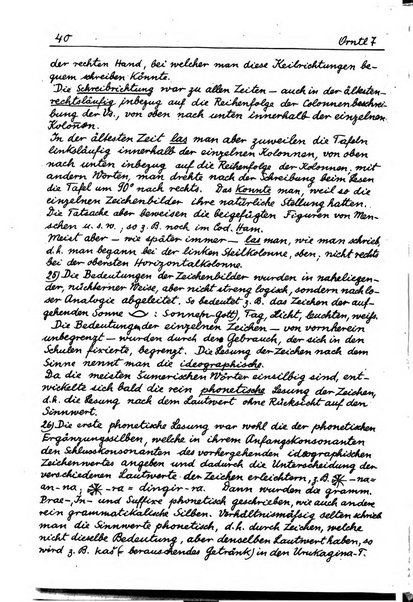 40 Orntl 7
der rechten Hand, bei welcher man diese Keilrichtungen be-
quem schreiben könnte.
Die Schreibrichtung war zu allen Zeiten – auch in der ältesten-
rechtsläufig inbezug auf die Reihenfolge der Colonnenbeschrei-
bung der Vs., von oben nach unten innerhalb der einzelnen
Kolonen.
In der ältesten Zeit las man aber zuweilen die Tafeln
linksläufig innerhalb der einzelnen Kolonnen, von oben
nach unten inbezug auf die Reihenfolge der Kolonnen, mit
andern Worten, man drehte nach der Schreibung beim Lesen
die Tafel um 90° nach rechts. Das konnte man, weil so die
einzelnen Zeichenbilder ihre natürliche Stellung hatten.
Die Tatsache aber beweisen die beigefügten Figuren von Men-
schen u.s.w., so z.B. noch im Cod. Ham.
Meist aber – wie später immer – las man, wie man schrieb,
d.h. man begann bei der linken Steilkolonne, oben; nicht rechts
bei der obersten Horizontalkolonne.
25) Die Bedeutungen der Zeichenbilder wurden in naheliegen-
der, nüchterner Weise, aber nicht streng logisch, sondern nach lo-
ser Analogie abgeleitet. So bedeutet z.B. das Zeichen der auf-
gehenden Sonne : Sonne(n-Gott), Tag, Licht, leuchten, weiß.
Die Bedeutungen der einzelnen Zeichen – von vornherein
unbegrenzt – wurden durch den Gebrauch, der sich in den
Schulen fixierte, begrenzt. Die Lesung der Zeichen nach dem
Sinne nennt man die ideographische.
Da die meisten Sumerischen Wörter einsilbig sind, ent-
wickelte sich bald die rein phonetische Lesung der Zeichen,
d.h. die Lesung nach dem Lautwert ohne Rücksicht auf den
Sinnwert.
26) Die erste phonetische Lesung war wohl die der phonetischen
Ergänzungssilben, welche in ihrem Anfangskonsonanten
den Schlusskonsonanten des vorhergehenden ideographischen
Zeichenwertes angeben und dadurch die Unterscheidung der
verschiedenen Lautwerte der Zeichen erleichtern, z.B. -na=
an-na, -ra = dingir-ra. Dann wurden die gramm.
Prae-, In- und Suffixe phonetisch geschrieben, wie auch andere
rein grammatikalische Silben. Verhältnismäßig selten schrieb
man die Sinnwerte phonetisch, d.h. durch Zeichen, welche
nicht dieselbe Bedeutung, aber denselben Lautwert haben, so
wird z.B. kaš (berauschendes Getränk) in den Urukagina-T.